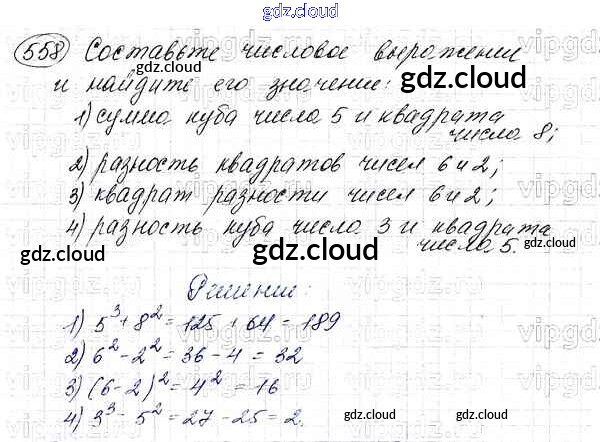 gdz.cloud
558 Составьте числовое выражении
и найдите его значение:
1) сумма куба числа 5 и квадрата
числа 8;
2) разность квадратов чисел 6 и 2;
3) квадрат разности чисел 6 и 2;
4) разность куба число 3 и квадрата
числа 5.
Решение:
1) 5³ + 8² = 125 + 64 = 189
2) 6² - 2² = 36 - 4 = 32
3) (6-2)² = 4² = 16
4) 3³ - 5² = 27 - 25 = 2.
gdz.cloud